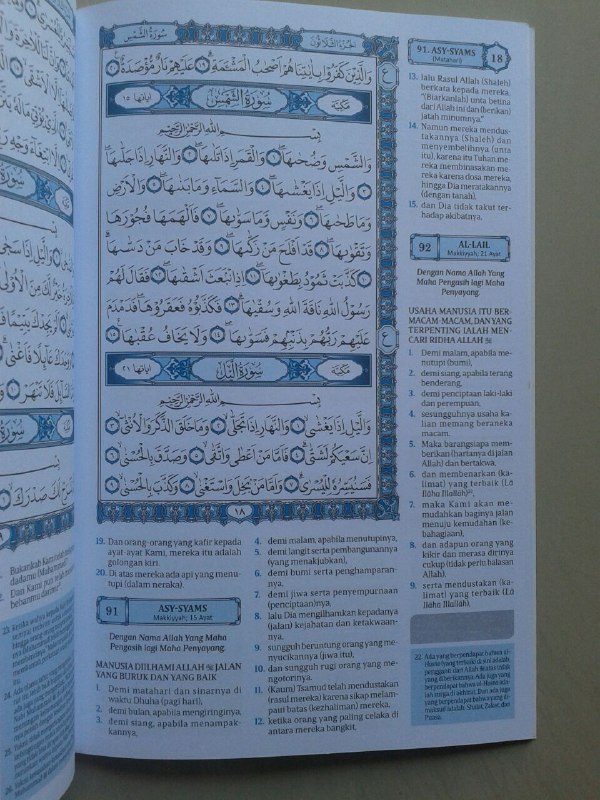 سُورَةُ الشَّمْسِ
الجُزْءُ الثَّلَاثُونَ
وَالَّذِينَ كَفَرُوا بِآيَاتِنَا هُمْ أَصْحَابُ الْمَشْئَمَةِ ۝١٩ عَلَيْهِمْ نَارٌ مُؤْصَدَةٌ ۝٢٠
مَكِّيَّة سُورَةُ الشَّمْسِ آياتها ١٥
بِسْمِ اللَّهِ الرَّحْمَٰنِ الرَّحِيمِ
وَالشَّمْسِ وَضُحَاهَا ۝١ وَالْقَمَرِ إِذَا تَلَاهَا ۝٢ وَالنَّهَارِ إِذَا جَلَّاهَا
۝٣ وَاللَّيْلِ إِذَا يَغْشَاهَا ۝٤ وَالسَّمَاءِ وَمَا بَنَاهَا ۝٥ وَالْأَرْضِ
وَمَا طَحَاهَا ۝٦ وَنَفْسٍ وَمَا سَوَّاهَا ۝٧ فَأَلْهَمَهَا فُجُورَهَا
وَتَقْوَاهَا ۝٨ قَدْ أَفْلَحَ مَنْ زَكَّاهَا ۝٩ وَقَدْ خَابَ مَنْ دَسَّاهَا
۝١٠ كَذَّبَتْ ثَمُودُ بِطَغْوَاهَا ۝١١ إِذِ انْبَعَثَ أَشْقَاهَا ۝١٢ فَقَالَ لَهُمْ
رَسُولُ اللَّهِ نَاقَةَ اللَّهِ وَسُقْيَاهَا ۝١٣ فَكَذَّبُوهُ فَعَقَرُوهَا فَدَمْدَمَ
عَلَيْهِمْ رَبُّهُمْ بِذَنْبِهِمْ فَسَوَّاهَا ۝١٤ وَلَا يَخَافُ عُقْبَاهَا ۝١٥
مَكِّيَّة سُورَةُ الَّيْلِ آياتها ٢١
بِسْمِ اللَّهِ الرَّحْمَٰنِ الرَّحِيمِ
وَاللَّيْلِ إِذَا يَغْشَى ۝١ وَالنَّهَارِ إِذَا تَجَلَّى ۝٢ وَمَا خَلَقَ الذَّكَرَ وَالْأُنْثَى ۝٣
إِنَّ سَعْيَكُمْ لَشَتَّى ۝٤ فَأَمَّا مَنْ أَعْطَى وَاتَّقَى ۝٥ وَصَدَّقَ بِالْحُسْنَى ۝٦
فَسَنُيَسِّرُهُ لِلْيُسْرَى ۝٧ وَأَمَّا مَنْ بَخِلَ وَاسْتَغْنَى ۝٨ وَكَذَّبَ بِالْحُسْنَى ۝٩
١٨
19. Dan orang-orang yang kafir kepada
ayat-ayat Kami, mereka itu adalah
golongan kiri.
20. Di atas mereka ada api yang menu-
tupi (dalam neraka).
91 ASY-SYAMS
Makkiyyah; 15 Ayat
Dengan Nama Allah Yang Maha
Pengasih lagi Maha Penyayang
MANUSIA DIILHAMI ALLAH ﷻ JALAN
YANG BURUK DAN YANG BAIK
1. Demi matahari dan sinarnya di
waktu Dhuha (pagi hari),
2. demi bulan, apabila mengiringinya,
3. demi siang, apabila menampak-
kannya,
4. demi malam, apabila menutupinya,
5. demi langit serta pembangunannya
(yang menakjubkan),
6. demi bumi serta penghamparan-
nya,
7. demi jiwa serta penyempurnaan
(penciptaan)nya,
8. lalu Dia mengilhamkan kepadanya
(jalan) kejahatan dan ketakwaan-
nya,
9. sungguh beruntung orang yang me-
nyucikannya (jiwa itu),
10. dan sungguh rugi orang yang me-
ngotorinya.
11. (Kaum) Tsamud telah mendustakan
(rasul mereka) karena sikap melam-
paui batas (kezhaliman) mereka,
12. ketika orang yang paling celaka di
antara mereka bangkit,
91. ASY-SYAMS
(Matahari)
18
13. lalu Rasul Allah (Shaleh)
berkata kepada mereka,
"(Biarkanlah) unta betina
dari Allah ini dan (berikan)
jatah minumnya."
14. Namun mereka mendus-
takannya (Shaleh) dan
menyembelihnya (unta
itu), karena itu Tuhan me-
reka membinasakan me-
reka karena dosa mereka,
hingga Dia meratakannya
(dengan tanah),
15. dan Dia tidak takut ter-
hadap akibatnya.
92 AL-LAIL
Makkiyyah; 21 Ayat
Dengan Nama Allah Yang
Maha Pengasih lagi Maha
Penyayang
USAHA MANUSIA ITU BER-
MACAM-MACAM, DAN YANG
TERPENTING IALAH MEN-
CARI RIDHA ALLAH ﷻ
1. Demi malam, apabila me-
nutupi (bumi),
2. demi siang, apabila terang
benderang,
3. demi penciptaan laki-laki
dan perempuan,
4. sesungguhnya usaha ka-
lian memang beraneka
macam.
5. Maka barangsiapa mem-
berikan (hartanya di jalan
Allah) dan bertakwa,
6. dan membenarkan (ka-
limat) yang terbaik (Lâ
Ilâha Illallâh)²²,
7. maka Kami akan me-
mudahkan baginya jalan
menuju kemudahan (ke-
bahagiaan),
8. dan adapun orang yang
kikir dan merasa dirinya
cukup (tidak perlu balasan
Allah),
9. serta mendustakan (ka-
limat) yang terbaik (Lâ
Ilâha Illallâh),
22. Ada yang berpendapat bahwa al-